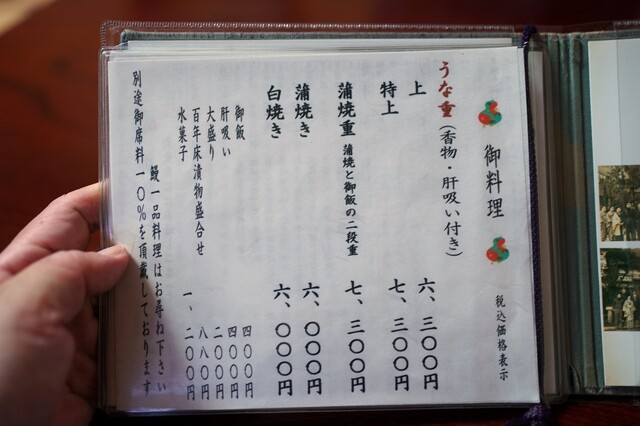 御料理
税込価格表示
うな重(香物・肝吸い付き)
上 六、三〇〇円
特上 七、三〇〇円
蒲焼重 蒲焼と御飯の二段重 七、三〇〇円
蒲焼き 六、〇〇〇円
白焼き 六、〇〇〇円
御飯 四〇〇円
肝吸い 四〇〇円
大盛り 二〇〇円
百年床漬物盛合せ 八八〇円
水菓子 一、二〇〇円
鰻一品料理はお尋ね下さい
別途御席料一〇%を頂戴しております